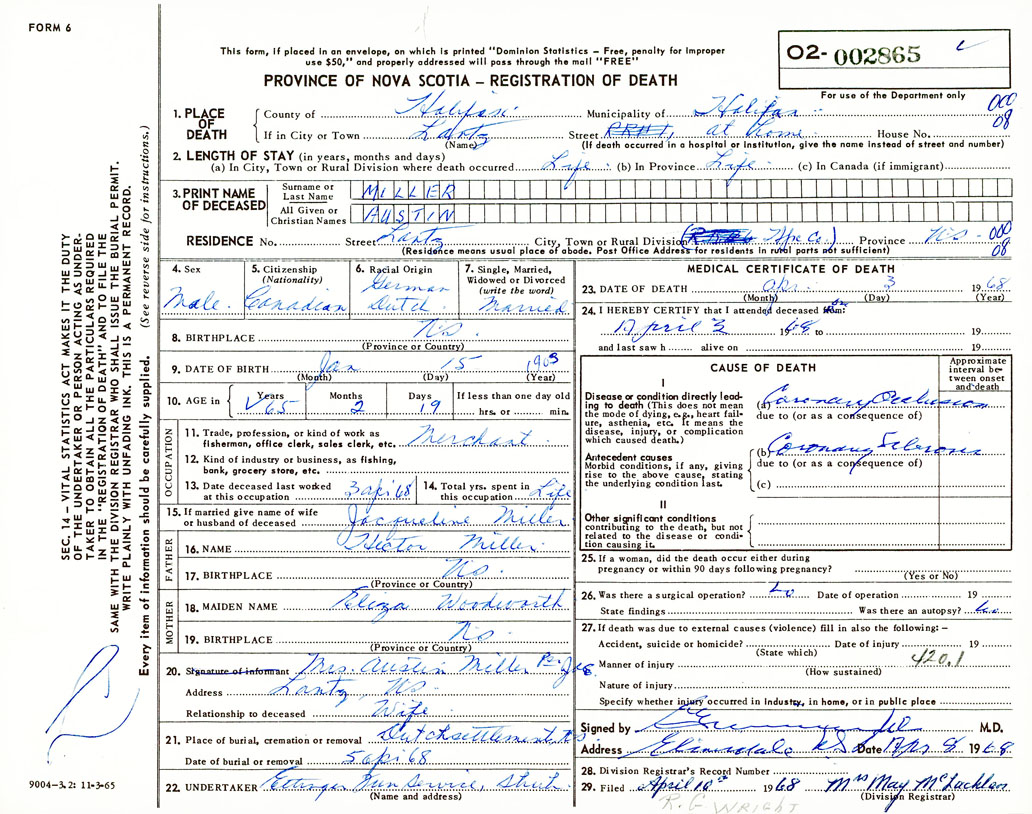 FORM 6
This form, if placed in an envelope, on which is printed "Dominion Statistics – Free, penalty for improper
use $50," and properly addressed will pass through the mail "FREE"
PROVINCE OF NOVA SCOTIA – REGISTRATION OF DEATH
O2- 002865
For use of the Department only
1. PLACE OF DEATH
County of Halifax Municipality of Halifax 000
If in City or Town Lantz Street at home House No. 08
(Name) (If death occurred in a hospital or institution, give the name instead of street and number)
2. LENGTH OF STAY (in years, months and days)
(a) In City, Town or Rural Division where death occurred Life (b) In Province Life (c) In Canada (if immigrant)
3. PRINT NAME OF DECEASED
Surname or Last Name MILLER
All Given or Christian Names AUSTIN
RESIDENCE No. Street Lantz City, Town or Rural Division Province NS 000
(Residence means usual place of abode. Post Office Address for residents in rural parts not sufficient) 08
4. Sex Male
5. Citizenship (Nationality) Canadian
6. Racial Origin German Dutch
7. Single, Married, Widowed or Divorced (write the word) Married
8. BIRTHPLACE NS
(Province or Country)
9. DATE OF BIRTH Jan 15 1903
(Month) (Day) (Year)
10. AGE in Years Months Days If less than one day old
65 2 19 hrs. or min.
OCCUPATION
11. Trade, profession, or kind of work as fisherman, office clerk, sales clerk, etc. Merchant
12. Kind of industry or business, as fishing, bank, grocery store, etc.
13. Date deceased last worked at this occupation 3 apr 68
14. Total yrs. spent in this occupation Life
15. If married give name of wife or husband of deceased Jacqueline Miller
FATHER
16. NAME Hector Miller
17. BIRTHPLACE NS
(Province or Country)
MOTHER
18. MAIDEN NAME Eliza Woodworth
19. BIRTHPLACE NS
(Province or Country)
20. Signature of informant Mrs. Austin Miller Per
Address Lantz, NS
Relationship to deceased Wife
21. Place of burial, cremation or removal Dutchsettlement NS
Date of burial or removal 5 apr 68
22. UNDERTAKER Ettinger Fun Service, Shub.
(Name and address)
MEDICAL CERTIFICATE OF DEATH
23. DATE OF DEATH Apr. 3 1968
(Month) (Day) (Year)
24. I HEREBY CERTIFY that I attended deceased on
April 3 1968 to 19
and last saw h alive on 19
CAUSE OF DEATH
Approximate interval between onset and death
I
Disease or condition directly leading to death (This does not mean the mode of dying, e.g., heart failure, asthenia, etc. It means the disease, injury, or complication which caused death.)
(a) Coronary Occlusion
due to (or as a consequence of)
Antecedent causes
Morbid conditions, if any, giving rise to the above cause, stating the underlying condition last.
(b) Coronary Sclerosis
due to (or as a consequence of)
(c)
II
Other significant conditions
contributing to the death, but not related to the disease or condition causing it.
25. If a woman, did the death occur either during pregnancy or within 90 days following pregnancy?
(Yes or No)
26. Was there a surgical operation? No Date of operation 19
State findings Was there an autopsy? No
27. If death was due to external causes (violence) fill in also the following: –
Accident, suicide or homicide? Date of injury 19
(State which)
Manner of injury 420.1
(How sustained)
Nature of injury
Specify whether injury occurred in industry, in home, or in public place
Signed by M.D.
Address Elmsdale NS Date Apr 8 1968
28. Division Registrar's Record Number
29. Filed April 10th 1968 Mrs May McLachlan
(Division Registrar)
R. E. WRIGHT
SEC. 14 – VITAL STATISTICS ACT MAKES IT THE DUTY
OF THE UNDERTAKER OR PERSON ACTING AS UNDER-
TAKER TO OBTAIN ALL THE PARTICULARS REQUIRED
IN THE "REGISTRATION OF DEATH" AND TO FILE THE
SAME WITH THE DIVISION REGISTRAR WHO SHALL ISSUE THE BURIAL PERMIT.
WRITE PLAINLY WITH UNFADING INK. THIS IS A PERMANENT RECORD.
Every item of information should be carefully supplied. (See reverse side for instructions.)
9004-3.2: 11-3-65